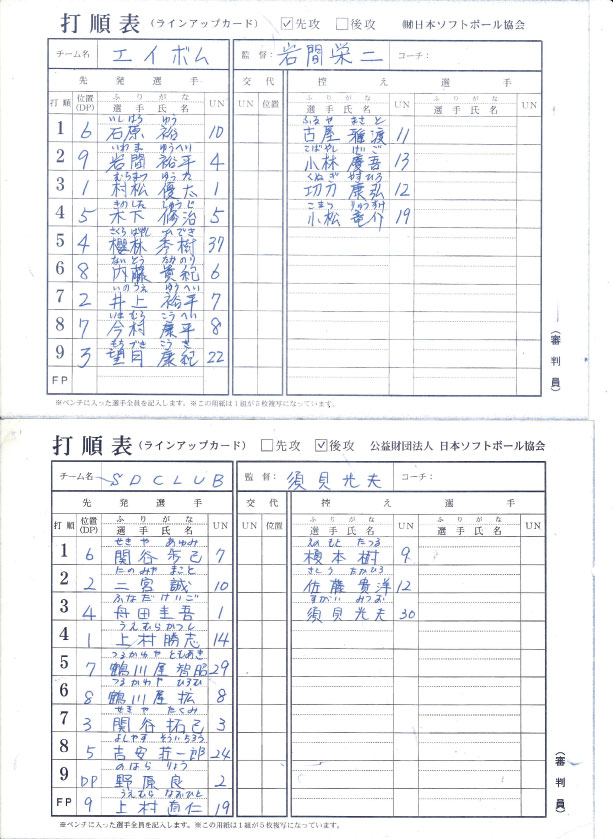 打順表 (ラインアップカード) ☑先攻 □後攻 ㈶日本ソフトボール協会
チーム名 エイボム 監督: 岩間栄二 コーチ:
先発選手 交代 控え選手
打順 位置(DP) ふりがな 選手氏名 UN UN 位置 ふりがな 選手氏名 UN ふりがな 選手氏名 UN
いしはら ゆう ふるや まさと
1 6 石原 裕 10 古屋 雅渡 11
いわま ゆうへい こばやし けいご
2 9 岩間 裕平 4 小林 慶吾 13
むらまつ ゆうた くぬぎ やすひろ
3 1 村松 優太 1 功刀 康弘 12
きのした しゅうじ こまつ りゅうすけ
4 5 木下 脩治 5 小松 竜介 19
さくらばやし ひでき
5 4 櫻林 秀樹 37
ないとう たかのり
6 8 内藤 貴紀 6
いのうえ ゆうへい
7 2 井上 裕平 7
いまむら こうへい
8 7 今村 康平 8
もちづき こうき
9 3 望月 康紀 22
FP
(審判員)
※ベンチに入った選手全員を記入します。※この用紙は1組が5枚複写になっています。
打順表 (ラインアップカード) □先攻 ☑後攻 公益財団法人 日本ソフトボール協会
チーム名 SDCLUB 監督: 須貝光夫 コーチ:
先発選手 交代 控え選手
打順 位置(DP) ふりがな 選手氏名 UN UN 位置 ふりがな 選手氏名 UN ふりがな 選手氏名 UN
せきや あゆみ えのもと たつる
1 6 関谷 歩己 7 榎本 樹 9
にのみや まこと さとう たかひろ
2 2 二宮 誠 10 佐藤 貴洋 12
ふなだ けいご すがい みつお
3 4 舟田圭吾 1 須貝光夫 30
うえむら かつし
4 1 上村勝志 14
つるかわや ともあき
5 7 鶴川屋智昭 29
つるかわや ひろむ
6 8 鶴川屋 拡 8
せきや たくみ
7 3 関谷 拓己 3
よしやす そういちろう
8 5 吉安 荘一郎 24
のはら りょう
9 DP 野原 良 2
うえむら なおひと
FP 9 上村 直仁 19
(審判員)
※ベンチに入った選手全員を記入します。※この用紙は1組が5枚複写になっています。